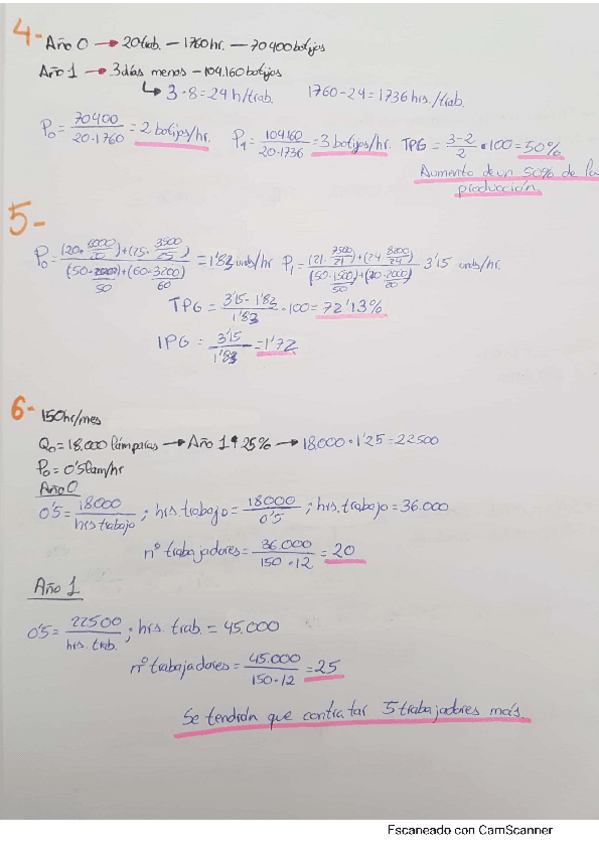 4- Año 0 → 20 trab. – 1760 hr. – 70400 botijos
Año 1 → 3 días menos – 104.160 botijos
↳ 3·8=24h/trab. 1760-24=1736 hrs./trab.
P₀ = 70400 / 20·1760 = 2 botijos/hr. P₁ = 104160 / 20·1736 = 3 botijos/hr. TPG = 3-2 / 2 · 100 = 50%
Aumento de un 50% de la
producción
5-
= 1'83 unds/hr 3'15 unds/hr.
TPG = 3'15 - 1'83 / 1'83 · 100 = 72'13%
IPG = 3'15 / 1'83 = 1'72
6- 150hr/mes
Q₀ = 18.000 lámparas → Año 1 ↑ 25% → 18.000 · 1'25 = 22500
P₀ = 0'5 lam/hr
Año 0
0'5 = 18000 / hrs trabajo ; hrs. trabajo = 18000 / 0'5 ; hrs. trabajo = 36.000
nº trabajadores = 36.000 / 150·12 = 20
Año 1
0'5 = 22500 / hrs. trab. ; hrs. trab. = 45.000
nº trabajadores = 45.000 / 150·12 = 25
Se tendrán que contratar 5 trabajadores más.
Escaneado con CamScanner